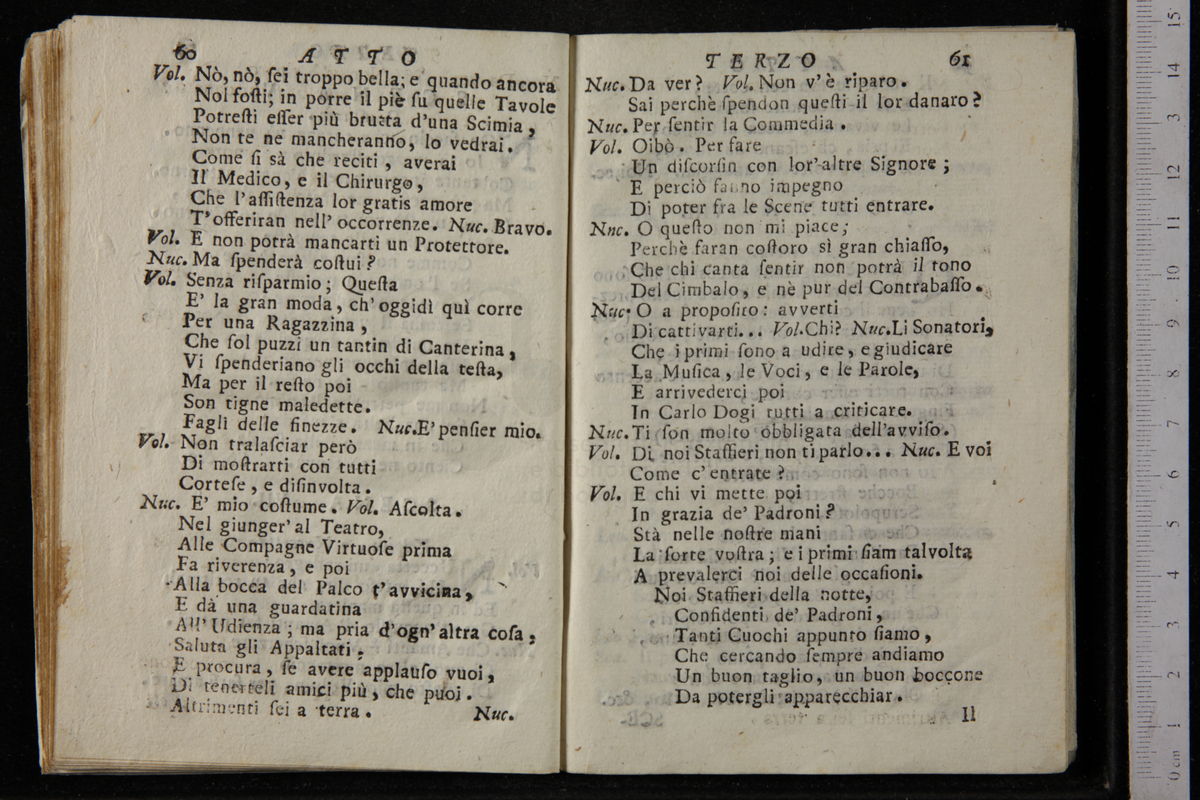 60 ATTO
Vol. Nò, nò, ſei troppo bella; e quando ancora
Nol foſti; in porre il piè ſu quelle Tavole
Potreſti eſſer più brutta d'una Scimia,
Non te ne mancheranno, lo vedrai.
Come ſi sà che reciti, averai
Il Medico, e il Chirurgo,
Che l'aſſiſtenza lor gratis amore
T'offeriran nell' occorrenze. Nuc. Bravo.
Vol. E non potrà mancarti un Protettore.
Nuc. Ma ſpenderà coſtui?
Vol. Senza riſparmio; Queſta
E' la gran moda, ch'oggidì quì corre
Per una Ragazzina,
Che ſol puzzi un tantin di Canterina,
Vi ſpenderiano gli occhi della teſta,
Ma per il reſto poi
Son tigne maledette.
Fagli delle finezze. Nuc. E' penſier mio.
Vol. Non tralaſciar però
Di moſtrarti con tutti
Corteſe, e diſinvolta.
Nuc. E' mio coſtume. Vol. Aſcolta.
Nel giunger' al Teatro,
Alle Compagne Virtuoſe prima
Fa riverenza, e poi
Alla bocca del Palco t'avvicina,
E dà una guardatina
All' Udienza; ma pria d'ogn' altra coſa,
Saluta gli Appaltati.
E procura, ſe avere applauſo vuoi,
Di tenerteli amici più, che puoi.
Altrimenti ſei a terra. Nuc.
TERZO 61
Nuc. Da ver? Vol. Non v'è riparo.
Sai perchè ſpendon queſti il lor danaro?
Nuc. Per ſentir la Commedia.
Vol. Oibò. Per fare
Un diſcorſin con lor'altre Signore;
E perciò fanno impegno
Di poter fra le Scene tutti entrare.
Nnc. O queſto non mi piace;
Perchè faran coſtoro sì gran chiaſſo,
Che chi canta ſentir non potrà il tono
Del Cimbalo, e nè pur del Contrabaſſo.
Nuc. O a propoſito: avverti
Di cattivarti... Vol. Chi? Nuc. Li Sonatori,
Che i primi ſono a udire, e giudicare
La Muſica, le Voci, e le Parole,
E arrivederci poi
In Carlo Dogi tutti a criticare.
Nuc. Ti ſon molto obbligata dell'avviſo.
Vol. Di noi Staffieri non ti parlo... Nuc. E voi
Come c'entrate?
Vol. E chi vi mette poi
In grazia de' Padroni?
Stà nelle noſtre mani
La ſorte voſtra; e i primi ſiam talvolta
A prevalerci noi delle occaſioni.
Noi Staffieri della notte,
Confidenti de' Padroni,
Tanti Cuochi appunto ſiamo,
Che cercando ſempre andiamo
Un buon taglio, un buon boccone
Da potergli apparecchiar.
Il
15
14
13
12
11
10
9
8
7
6
5
4
3
2
1
0 cm